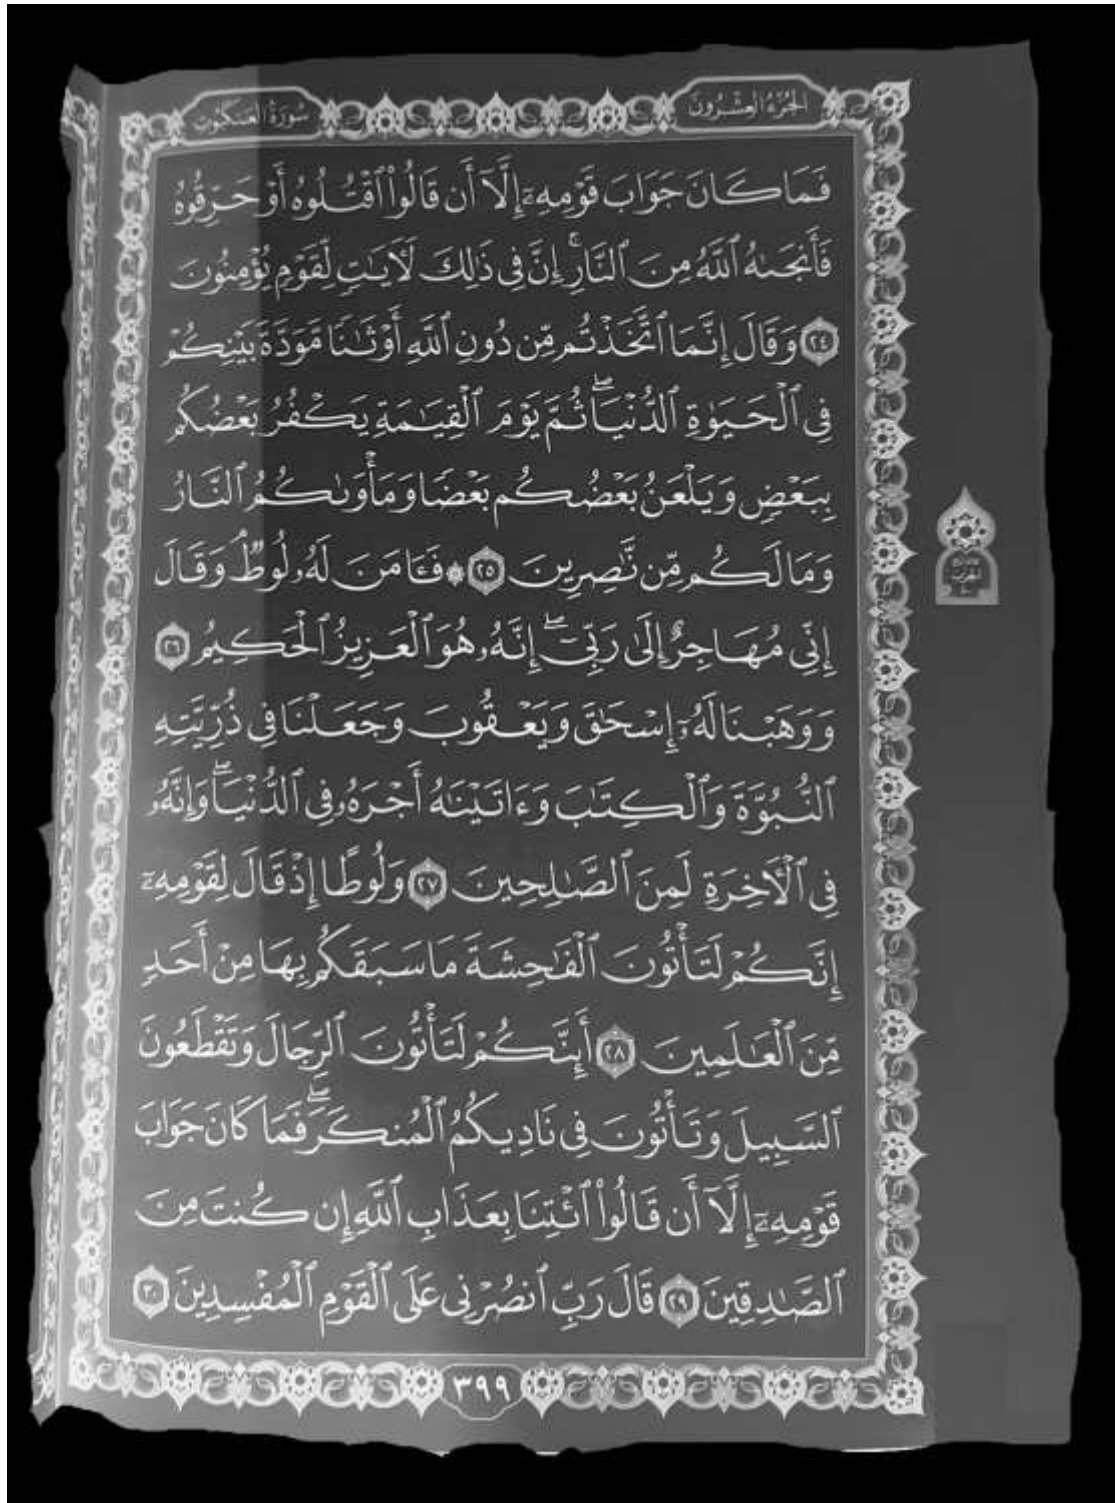 الجزء العشرون
سورة العنكبوت
فَمَا كَانَ جَوَابَ قَوْمِهِۦٓ إِلَّآ أَن قَالُوا۟ ٱقْتُلُوهُ أَوْ حَرِّقُوهُ
فَأَنجَىٰهُ ٱللَّهُ مِنَ ٱلنَّارِ ۚ إِنَّ فِى ذَٰلِكَ لَـَٔايَـٰتٍ لِّقَوْمٍ يُؤْمِنُونَ
٢٤ وَقَالَ إِنَّمَا ٱتَّخَذْتُم مِّن دُونِ ٱللَّهِ أَوْثَـٰنًا مَّوَدَّةَ بَيْنِكُمْ
فِى ٱلْحَيَوٰةِ ٱلدُّنْيَا ۖ ثُمَّ يَوْمَ ٱلْقِيَـٰمَةِ يَكْفُرُ بَعْضُكُم
بِبَعْضٍ وَيَلْعَنُ بَعْضُكُم بَعْضًا وَمَأْوَىٰكُمُ ٱلنَّارُ
وَمَا لَكُم مِّن نَّـٰصِرِينَ ٢٥ ۞ فَـَٔامَنَ لَهُۥ لُوطٌ ۘ وَقَالَ
إِنِّى مُهَاجِرٌ إِلَىٰ رَبِّىٓ ۖ إِنَّهُۥ هُوَ ٱلْعَزِيزُ ٱلْحَكِيمُ ٢٦
وَوَهَبْنَا لَهُۥٓ إِسْحَـٰقَ وَيَعْقُوبَ وَجَعَلْنَا فِى ذُرِّيَّتِهِ
ٱلنُّبُوَّةَ وَٱلْكِتَـٰبَ وَءَاتَيْنَـٰهُ أَجْرَهُۥ فِى ٱلدُّنْيَا ۖ وَإِنَّهُۥ
فِى ٱلْـَٔاخِرَةِ لَمِنَ ٱلصَّـٰلِحِينَ ٢٧ وَلُوطًا إِذْ قَالَ لِقَوْمِهِۦٓ
إِنَّكُمْ لَتَأْتُونَ ٱلْفَـٰحِشَةَ مَا سَبَقَكُم بِهَا مِنْ أَحَدٍ
مِّنَ ٱلْعَـٰلَمِينَ ٢٨ أَئِنَّكُمْ لَتَأْتُونَ ٱلرِّجَالَ وَتَقْطَعُونَ
ٱلسَّبِيلَ وَتَأْتُونَ فِى نَادِيكُمُ ٱلْمُنكَرَ ۖ فَمَا كَانَ جَوَابَ
قَوْمِهِۦٓ إِلَّآ أَن قَالُوا۟ ٱئْتِنَا بِعَذَابِ ٱللَّهِ إِن كُنتَ مِنَ
ٱلصَّـٰدِقِينَ ٢٩ قَالَ رَبِّ ٱنصُرْنِى عَلَى ٱلْقَوْمِ ٱلْمُفْسِدِينَ ٣٠
٣٩٩